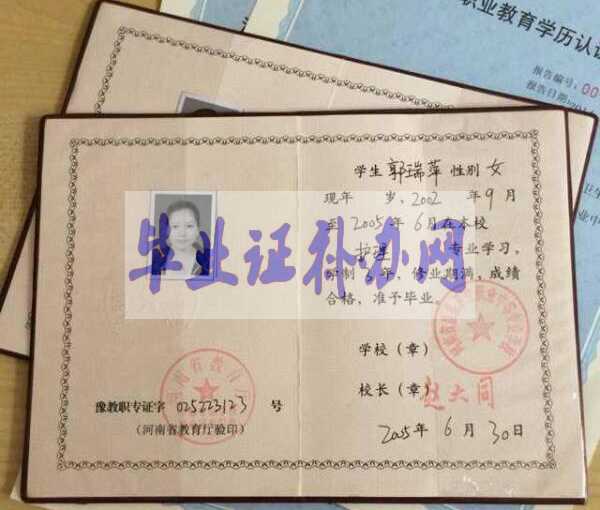 职业教育学历认证
报告编号：00
报告日期：201
学生 郭瑞萍 性别 女
现年 岁，2002 年 9 月
至 2005 年 6 月在本校
护理 专业学习，
年，修业期满，成绩
合格，准予毕业。
毕业证补办网
学校（章）
校长（章）赵大同
河南省教育厅
豫教职专证字 025223123 号
（河南省教育厅验印）
2005 年 6 月 30 日